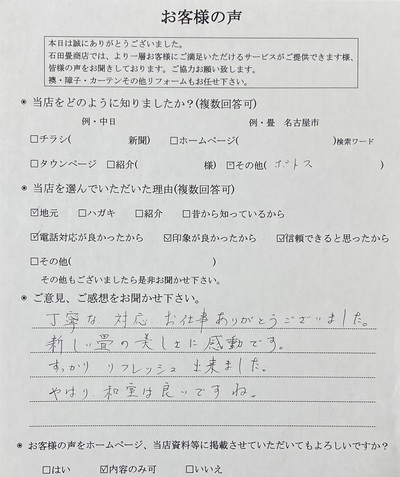 お客様の声
本日は誠にありがとうございました。
石田畳商店では、より一層お客様にご満足いただけるサービスがご提供できます様、
皆様の声をお聞きしております。ご協力お願い致します。
襖・障子・カーテンその他リフォームもお任せ下さい。
◉ 当店をどのように知りましたか?(複数回答可)
例・中日 例・畳 名古屋市
□チラシ( 新聞) □ホームページ( )検索ワード
□タウンページ □紹介( 様) ☑その他( ポトス )
◉ 当店を選んでいただいた理由(複数回答可)
☑地元 □ハガキ □紹介 □昔から知っているから
☑電話対応が良かったから ☑印象が良かったから ☑信頼できると思ったから
□その他( )
その他もございましたら是非お聞かせ下さい。
◉ ご意見、ご感想をお聞かせ下さい。
丁寧な 対応 お仕事ありがとうございました。
新しい畳の美しさに感動です。
すっかり リフレッシュ 出来ました。
やはり 和室は良いですね。
◉ お客様の声をホームページ、当店資料等に掲載させていただいてもよろしいですか?
□はい ☑内容のみ可 □いいえ